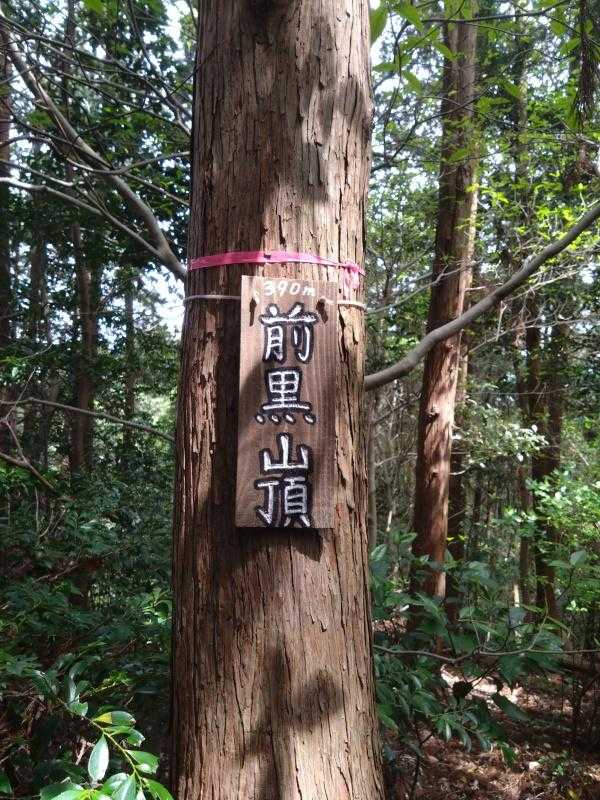 390m
前黒山頂